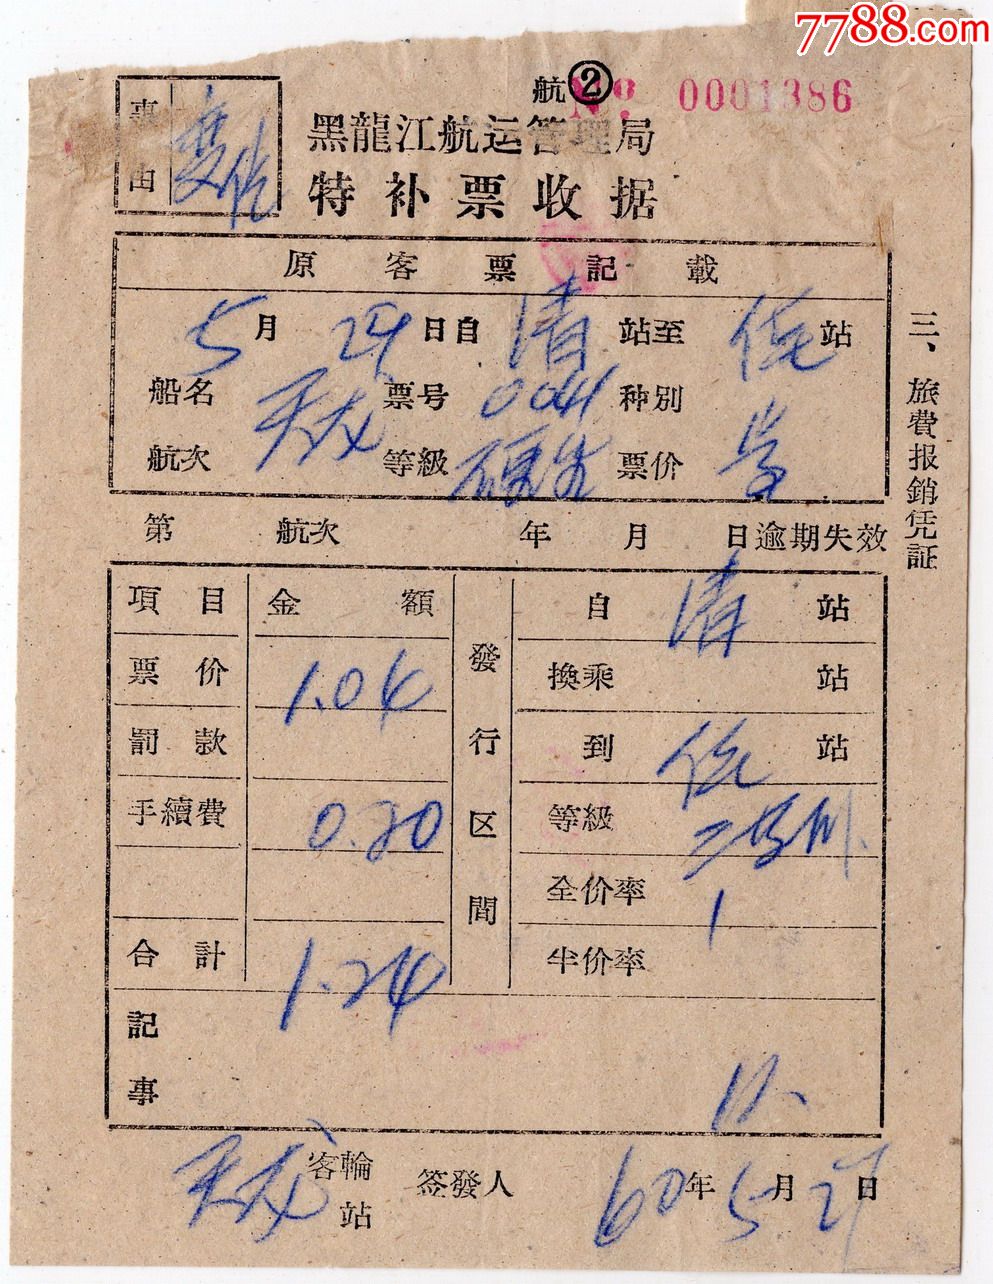 7788.com
航② № 0001386
事由
黑龍江航运管理局
特补票收据
原客票記載
5月29日自清站至佳站
船名 天龙 票号 0041 种別
航次 等級 硬坐 票价
第 航次 年 月 日逾期失效
項目 金額 發行区間 自清站
票价 1.04 換乘 站
罰款 到佳站
手續費 0.20 等級 二等
全价率 1
合計 1.24 半价率
記事
天龙 客輪站 签發人 60年5月29日
三、旅費报銷凭証